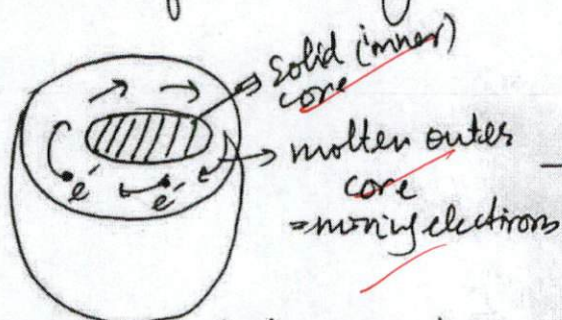 solid (inner)
core
molten outer
core
= moving electrons
e⁻ e⁻